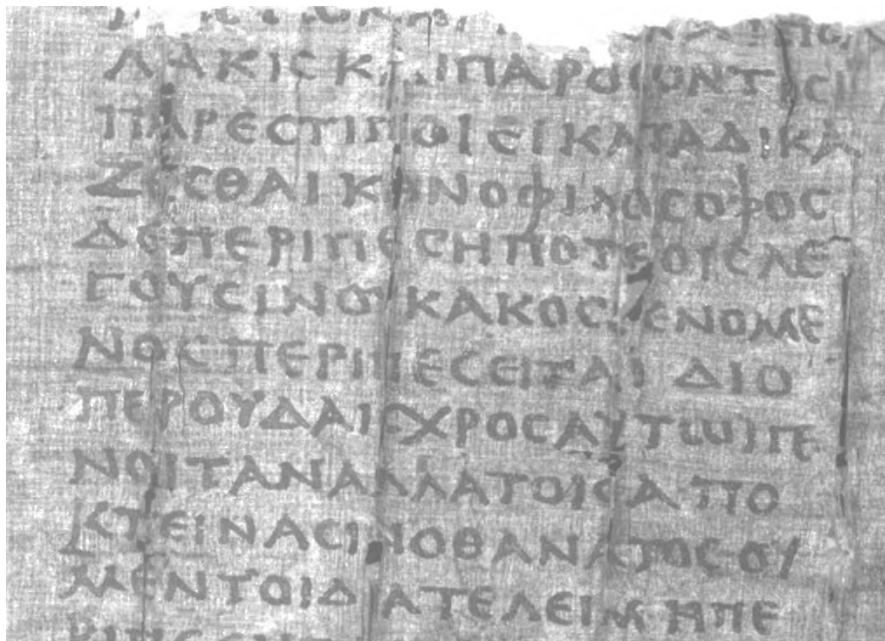 ΛΑΚΙϹΚΑΙΠΑΡΟϹΟΝΤΙϹΙ
ΠΑΡΕϹΤΙΠΟΙΕΙΚΑΤΑΔΙΚΑ
ΖΕϹΘΑΙΚΑΝΟΦΙΛΟϹΟΦΟϹ
ΔΕΠΕΡΙΠΕϹΗΠΟΤΕΟΙϹΛΕ
ΓΟΥϹΙΝΟΥΚΑΚΟϹΓΕΝΟΜΕ
ΝΟϹΠΕΡΙΠΕϹΕΙΤΑΙ ΔΙΟ
ΠΕΡΟΥΔΑΙϹΧΡΟϹΑΥΤωΙΓΕ
ΝΟΙΤΑΝΑΛΛΑΤΟΙϹΑΠΟ
ΚΤΕΙΝΑϹΙΝΟΘΑΝΑΤΟϹΟΥ
ΜΕΝΤΟΙΔΙΑΤΕΛΕΙΜΗΠΕ